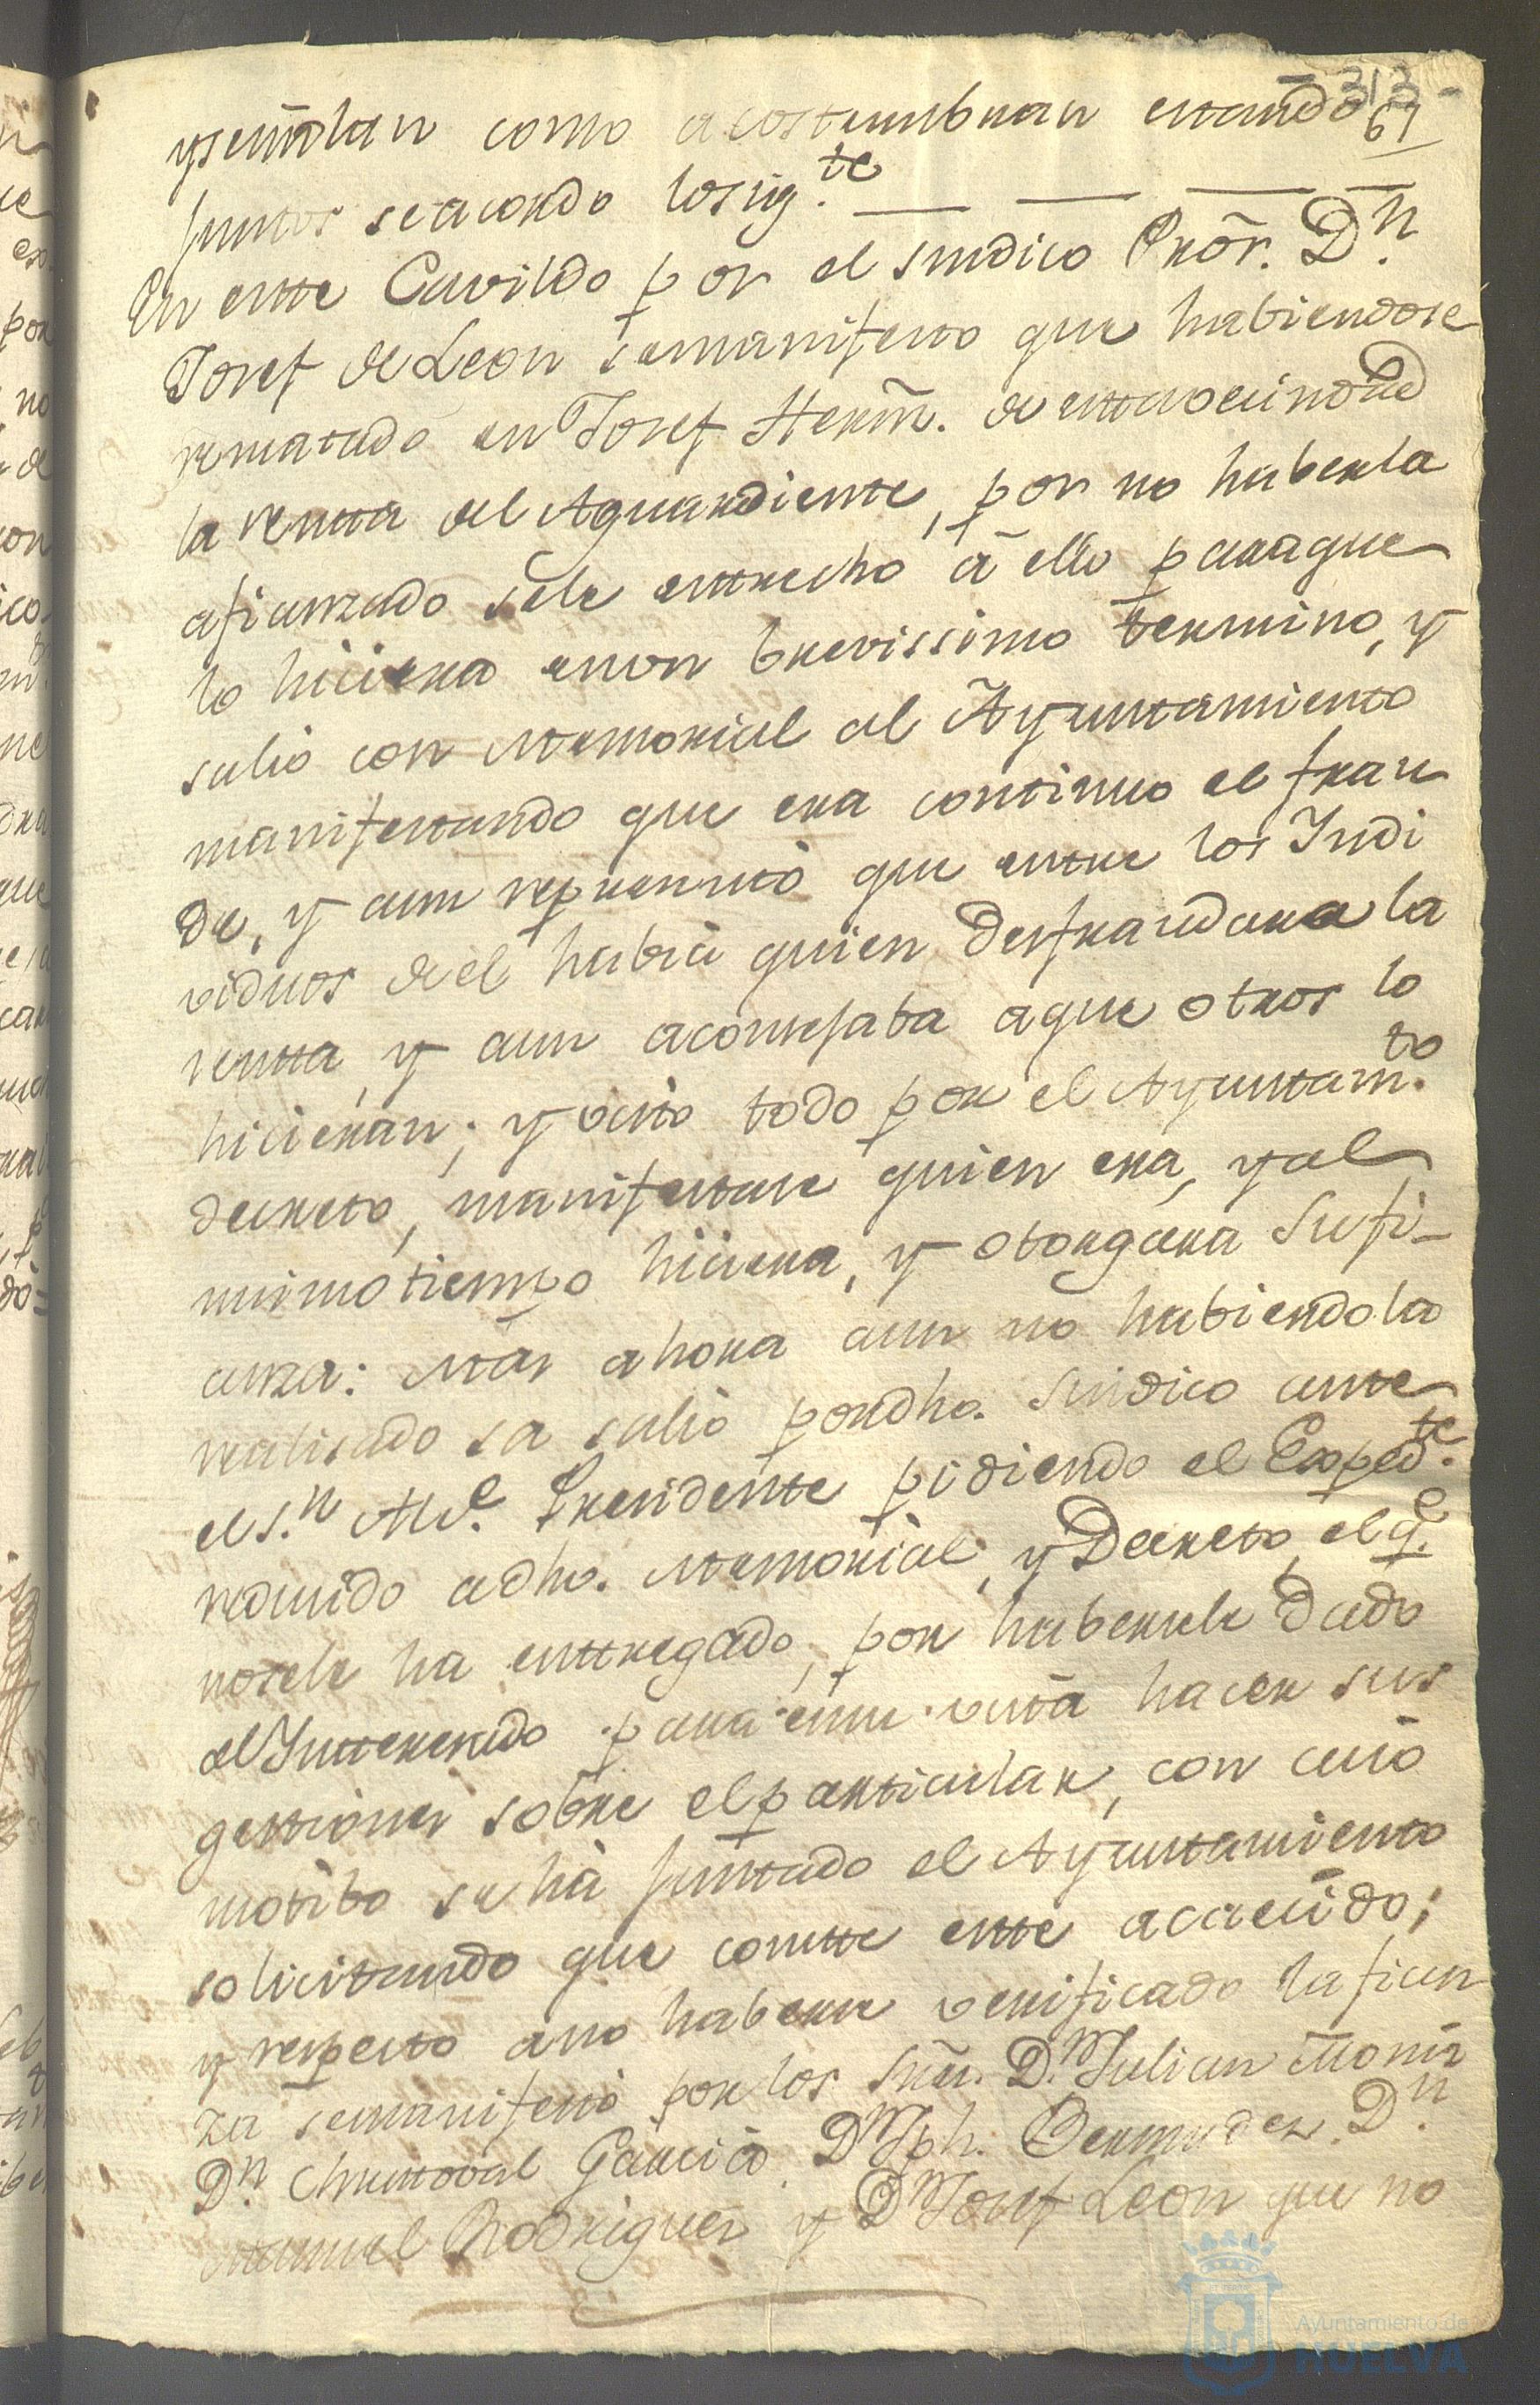 - 313 -
67
y señalan como acostumbran estando
juntos se acordo lo sig.te
En este Cavildo por el sindico Pror. Dn.
Josef de Leon se manifesto que habiendose
rematado en Josef Herm. de esta vecindad
la renta del Aguardiente, por no haberla
afianzado se le estrecho á ello para que
lo hiciera en un brevissimo termino, y
salió con Memorial al Ayuntamiento
manifestando que era continuo el frau
de, y aun representó que entre los Indi
viduos de el habia quien desfraudara la
renta, y aun aconsejaba a que otros lo
hicieran; y visto todo por el Ayuntam.to
decreto, manifestase quien era, y al
mismo tiempo hiciera, y otorgara su fi-
anza: Mas ahora aun no habiendola
realisado sa salió por dho. Sindico ante
el S.n Alc.e Presidente pidiendo el Exped.te
reducido a dho. Memorial, y Decreto, el q.e
no se le ha entregado, por habersele dado
al Ynteresado para en su vista hacer sus
gestiones sobre el particular, con cuio
motibo se há juntado el Ayuntamiento
solicitando que conste este acaecido;
y respecto a no haberse verificado la fian
za se manifestó por los Sres. D.n Julian
D.n Christoval Garcia, D.n Jph. Bermudez, D.n
Manuel Rodriguez y D.n Josef Leon que no
Ayuntamiento de
HUELVA